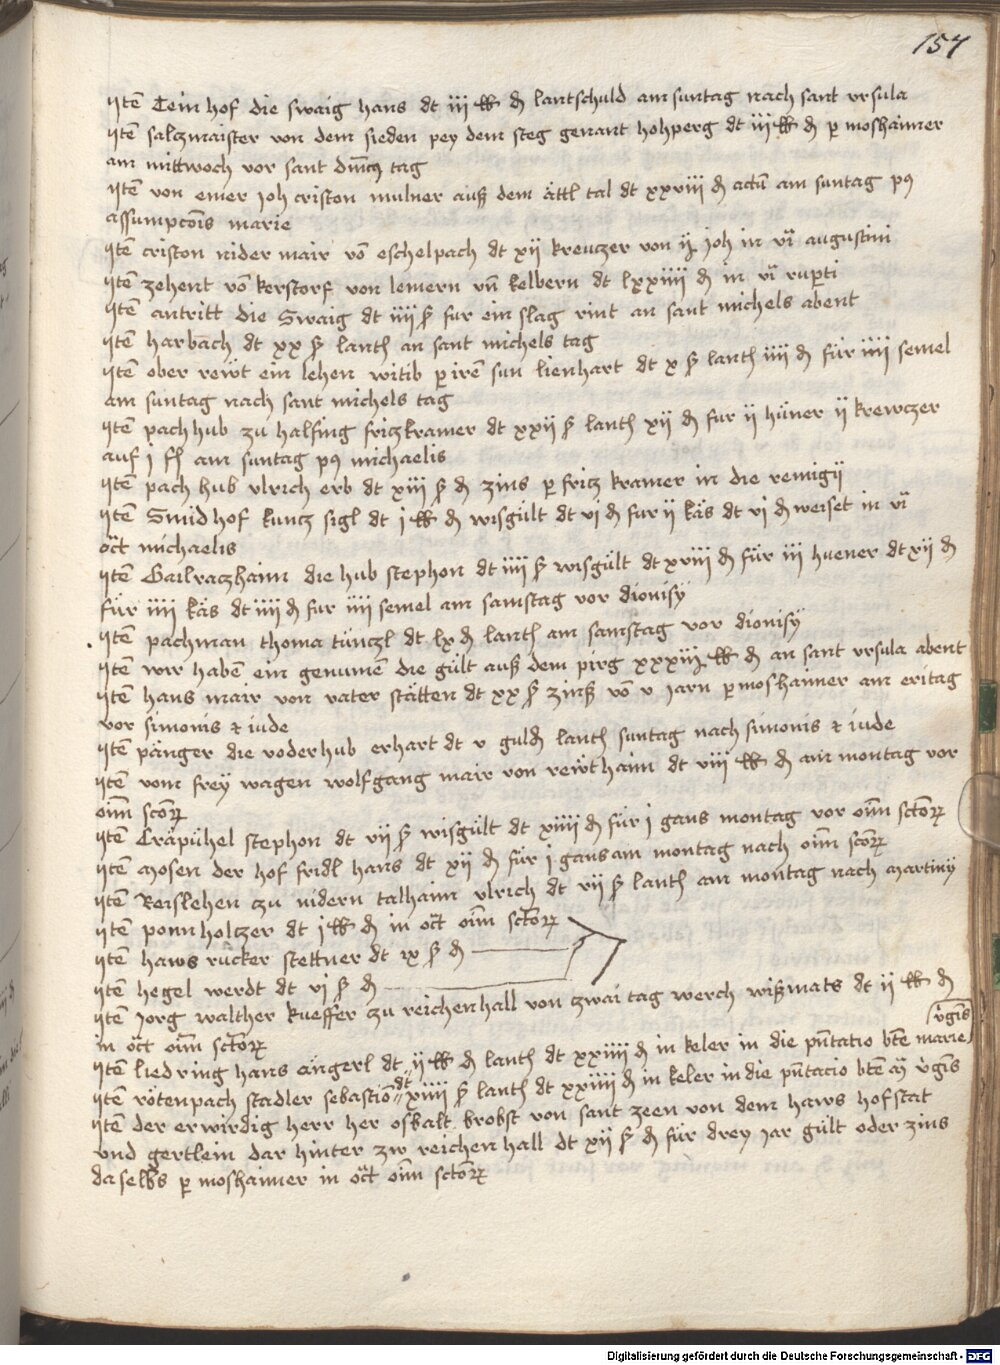 157
Itē Tein hof die swaig hans dt iij ℔ ₰ lantschuld am suntag nach sant vrsula
Itē saltzmaister von dem sieden pey dem steg genant hohperg dt iij ℔ ₰ p moshaimer
am mittwoch vor sant tag
Itē von einer Joh criston mulner auß dem ättl tal dt xxviii ₰ actū am suntag pꝰ
assumpcōis marie
Itē criston nider mair vō eschelpach dt xij kreuczer von Joh in vi augustini
Itē zehent vō kerstorf von lemern vn̄ kelbern dt lxxiiii ₰ in vi ruperti
Itē antritt die Swaig dt iiii ß fur ein slag rint an sant michels abent
Itē harbach dt xx ß lanth an sant michels tag
Itē ober rewt ein lehen witib p iren sun lienhart dt x ß lanth iiii ₰ für iiii semel
am suntag nach sant michels tag
Itē pachhub zu halfing fritz kramer dt xxij ß lanth xij ₰ fur ij hüner ij krewczer
auf j am suntag pꝰ michaelis
Itē pach hub vlrich erb dt xiii ß ₰ zins p fritz kramer in die remigij
Itē Smid hof kuntz sigl dt j ℔ ₰ wisgült dt vi ₰ fur ij käs dt vi ₰ weiset in vi
oct michaelis
Itē Gailraczhaim die hub stephon dt iiii ß wisgült dt xviii ₰ für iii huener dt xij ₰
für iiii käs dt iiii ₰ fur iiii semel am samstag vor dionisy
Itē pachman thoma tünczl dt lx ₰ lanth am samstag vor dionisy
Itē wir habē ein genumē die gült auß dem pirg xxxiij ℔ ₰ an sant vrsula abent
Itē hans mair von vater stätten dt xx ß zinß vō v jarn p moshaimer am eritag
vor simonis & iude
Itē pänger die voderhub erhart dt v guldn lanth suntag nach simonis & iude
Itē vom frey wagen wolfgang mair von rewthaim dt viii ℔ ₰ am montag vor
oim̄ sctōrꝝ
Itē Cräpühel stephon dt vij ß wisgült dt xiiii ₰ für j gans montag vor oim̄ sctōrꝝ
Itē Mosen der hof fridl hans dt xij ₰ für j gans am montag nach oim̄ sctōrꝝ
Itē Reislehen zu nidern talhaim vlrich dt vij ß lanth am montag nach Martiny
Itē ponnholtzer dt j ℔ ₰ in oct oim̄ sctōrꝝ
Itē haws rucker stettner dt ix ß ₰
Itē hegel werdt dt vi ß ₰
Itē Jorg walther kueffer zu reichenhall von zwai tag werch wißmats dt ij ℔ ₰
in oct oim̄ sctōrꝝ
Itē liedring hans angerl dt ij ℔ ₰ lanth dt xxiiii ₰ in keler in die pn̄tatio btē marie v̄gis
Itē rötenpach stadler sebastiō dt xiiii ß lanth dt xxiiii ₰ in keler in die pn̄tatio btē v̄gis
Itē der erwirdig herr her oswalt brobst von sant zeen von dem haws hofstat
vnd gertlein dar hinter zw reichen hall dt xij ß ₰ für drey jar gült oder zins
daselbs p moshaimer in oct oim̄ sctōrꝝ
Digitalisierung gefördert durch die Deutsche Forschungsgemeinschaft - DFG